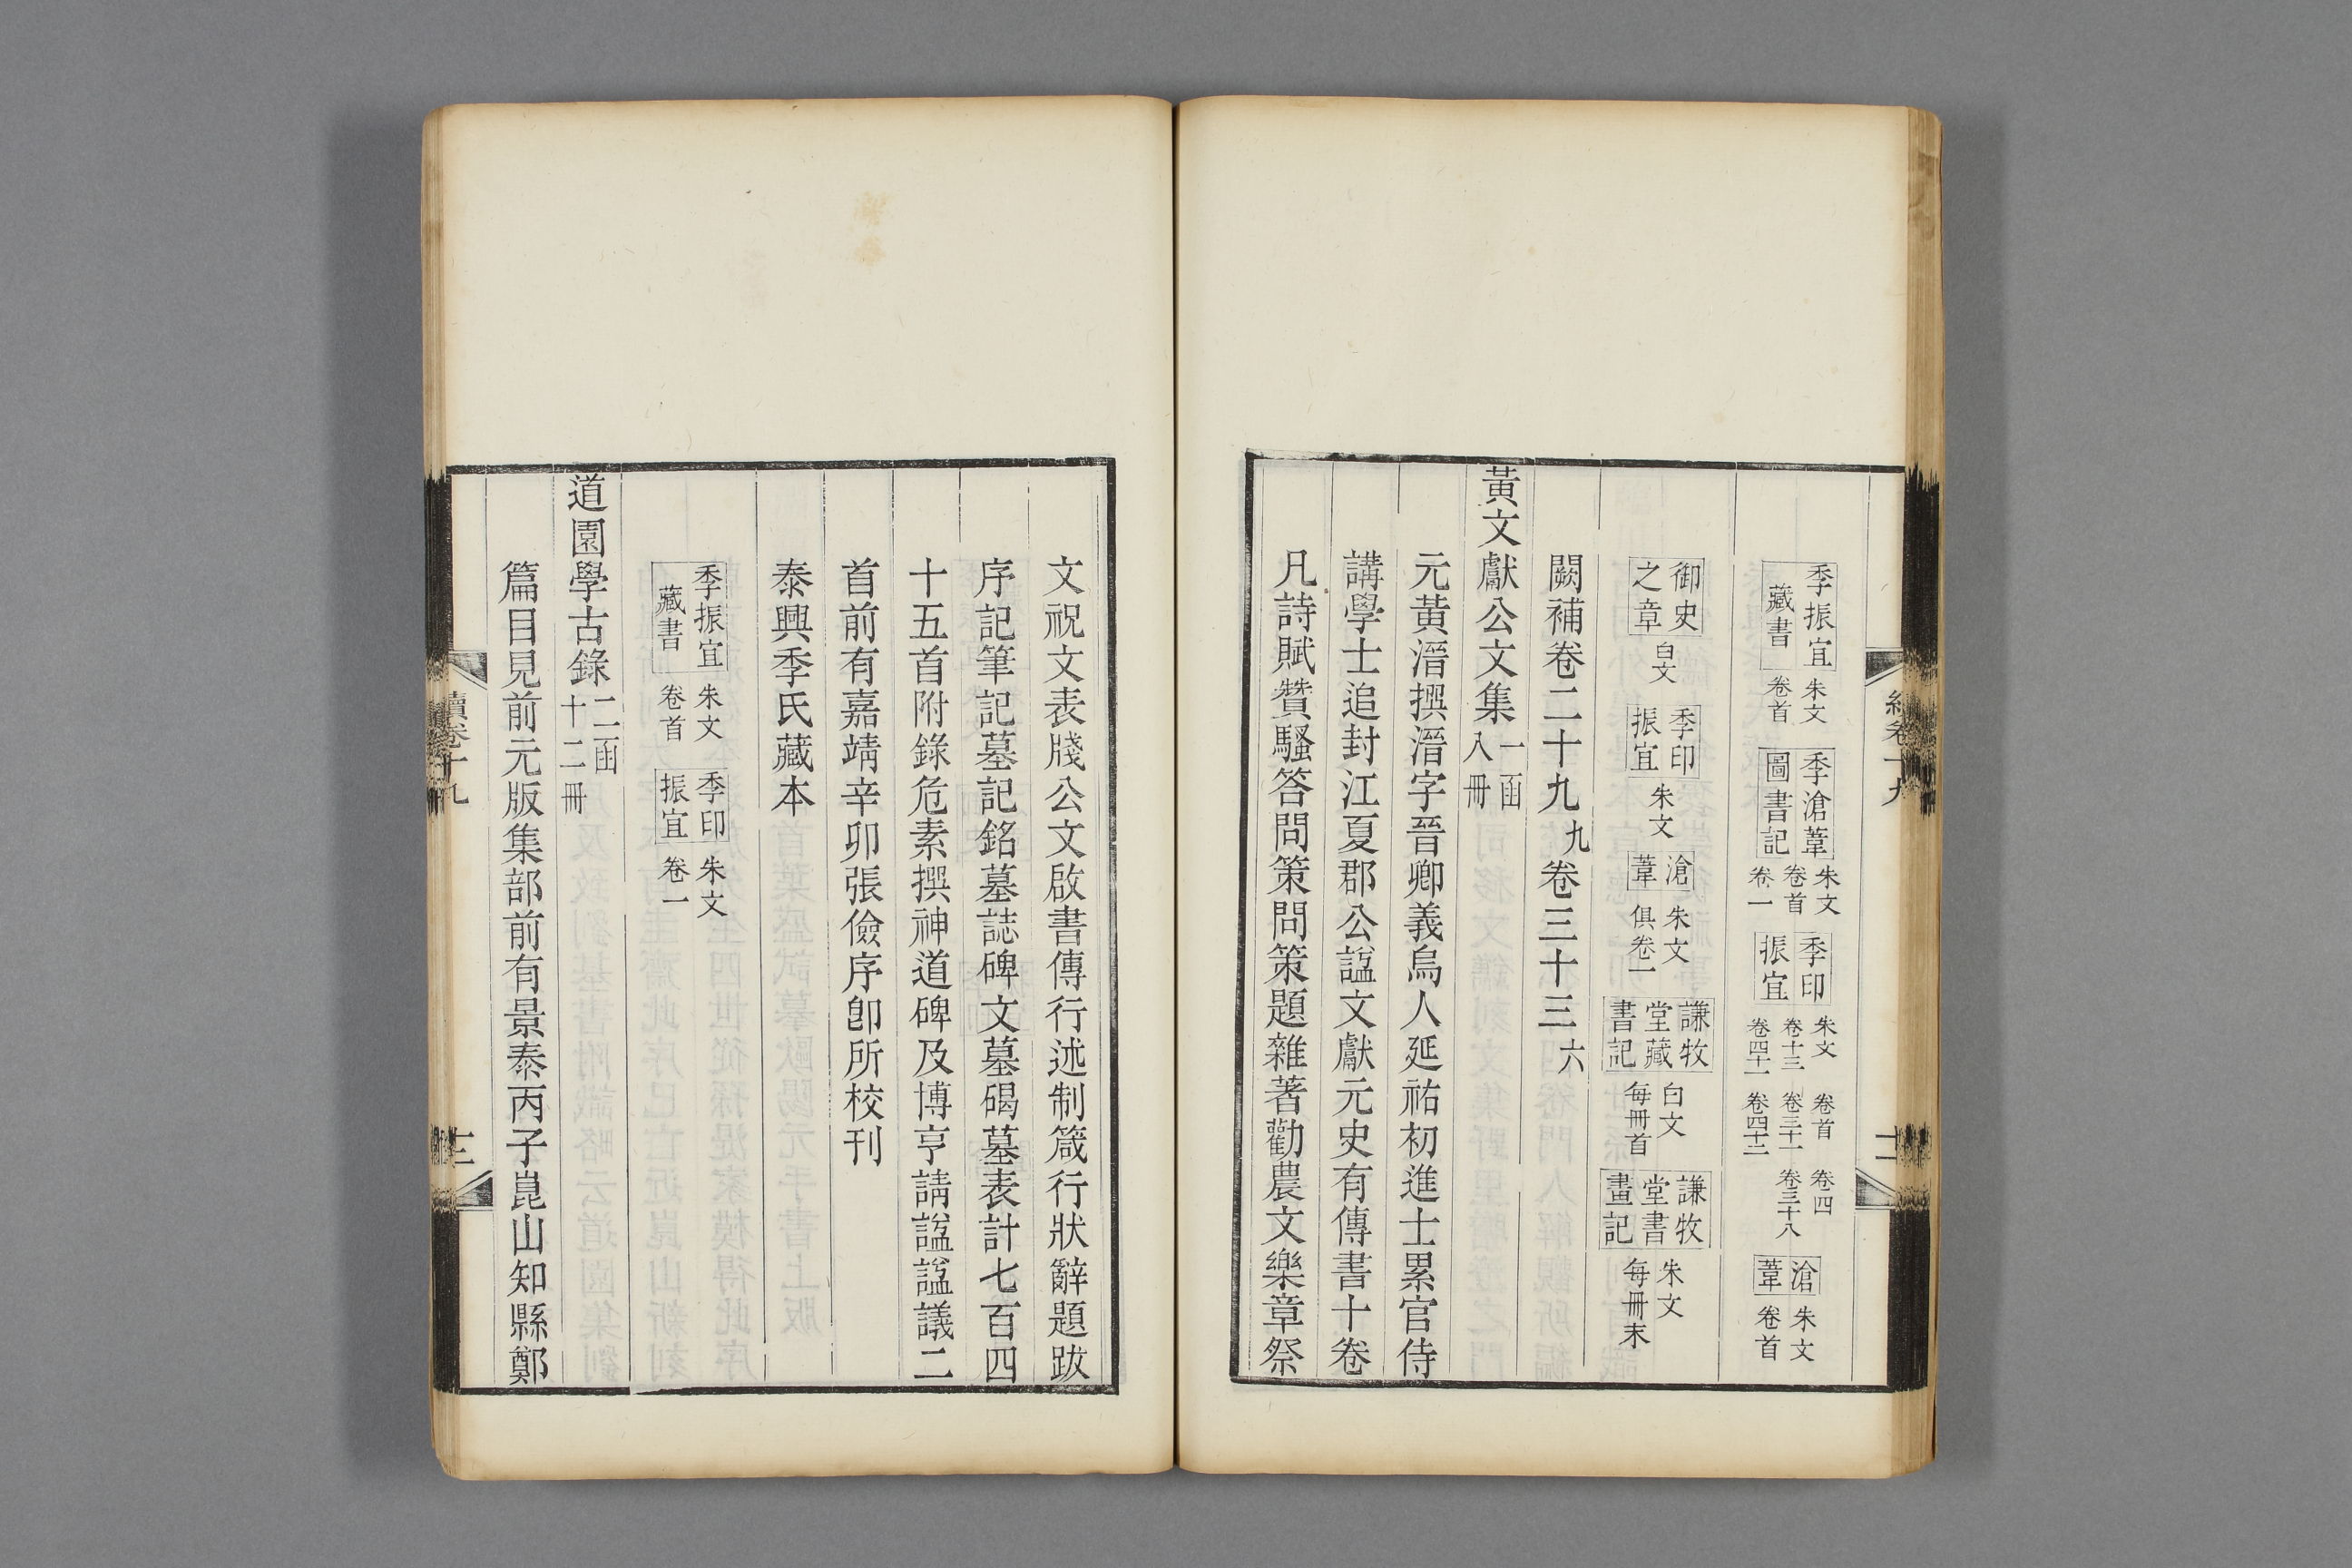 季振宜藏書 朱文卷首 季滄葦圖書記 朱文卷首卷一 季印振宜 朱文卷十三卷四十一 卷首卷三十一卷四十二 卷四卷三十八 滄葦 朱文卷首
御史之章 白文 季印振宜 朱文 滄葦 朱文俱卷一 謙牧堂藏書記 白文每冊首 謙牧堂書畫記 朱文每冊末
闕補卷二十九 九 卷三十三 六
黃文獻公文集 一函入冊
元黃溍撰溍字晉卿義烏人延祐初進士累官侍
講學士追封江夏郡公諡文獻元史有傳書十卷
凡詩賦贊騷答問策問策題雜著勸農文樂章祭
文祝文表牋公文啟書傳行述制箴行狀辭題跋
序記筆記墓記銘墓誌碑文墓碣墓表計七百四
十五首附錄危素撰神道碑及博亨請諡諡議二
首前有嘉靖辛卯張儉序卽所校刊
泰興季氏藏本
季振宜藏書 朱文卷首 季印振宜 朱文卷一
道園學古錄 二函十二冊
篇目見前元版集部前有景泰丙子崑山知縣鄭
續卷十九